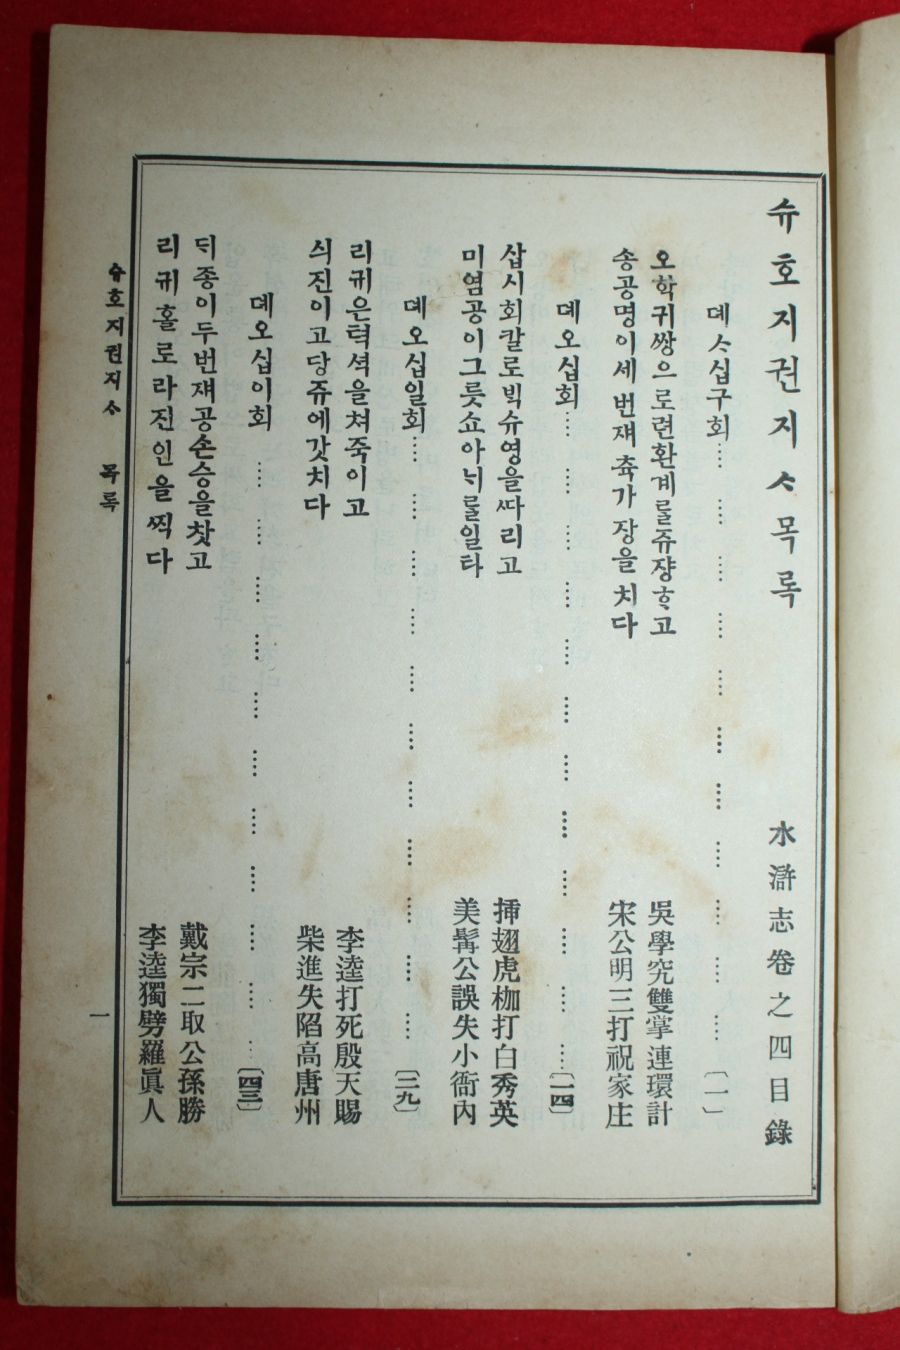 슈호지권지ᄉᆞ목록 水滸志卷之四目錄
뎨ᄉᆞ십구회 〔一〕
오학귀쌍으로련환계ᄅᆞᆯ쥬쟝ᄒᆞ고 吳學究雙掌連環計
송공명이세번재츅가장을치다 宋公明三打祝家庄
뎨오십회 〔一四〕
삽시회칼로빅슈영을ᄯᅡ리고 挿翅虎枷打白秀英
미염공이그릇쇼아ᄂᆡᄅᆞᆯ일타 美髯公誤失小衙內
뎨오십일회 〔二九〕
리귀은텬셕을쳐죽이고 李逵打死殷天賜
싀진이고당쥬에갓치다 柴進失陷高唐州
뎨오십이회 〔四三〕
ᄃᆡ종이두번재공손승을찻고 戴宗二取公孫勝
리귀홀로라진인을ᄶᅵᆨ다 李逵獨劈羅眞人
슈호지권지ᄉᆞ 목록 一